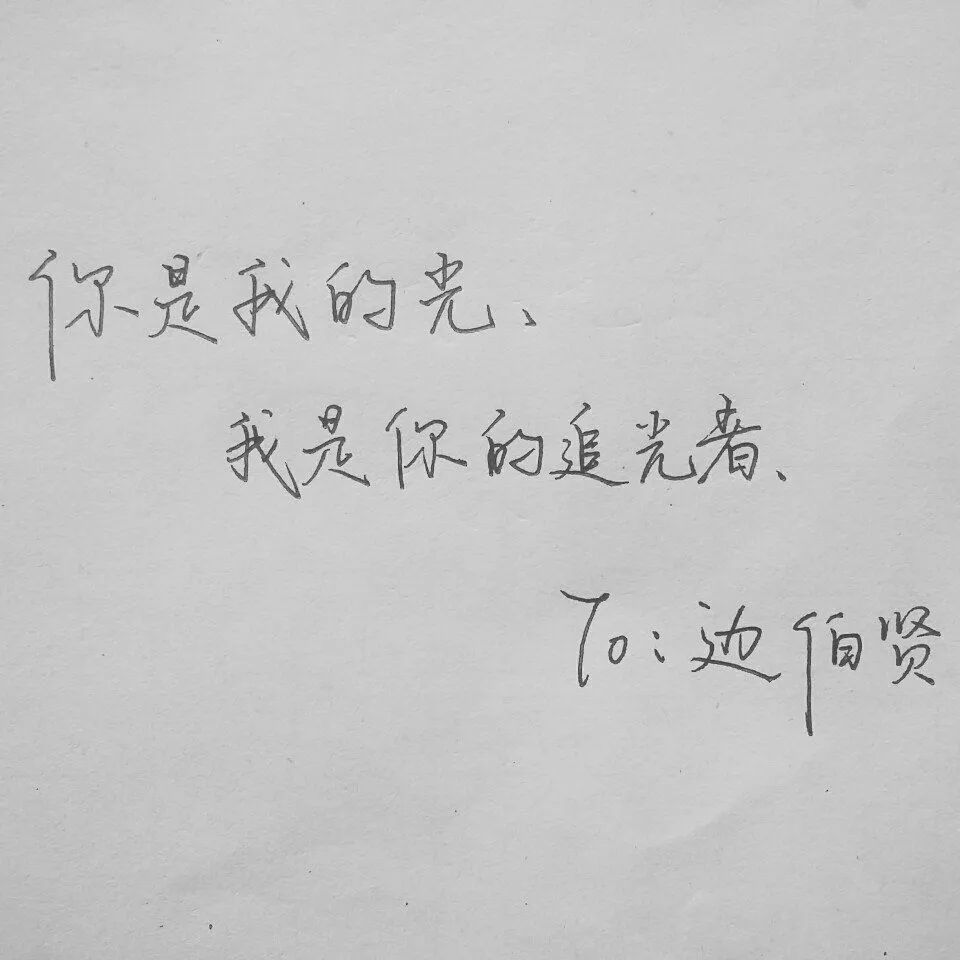 你是我的光、
我是你的追光者、
To:边伯贤